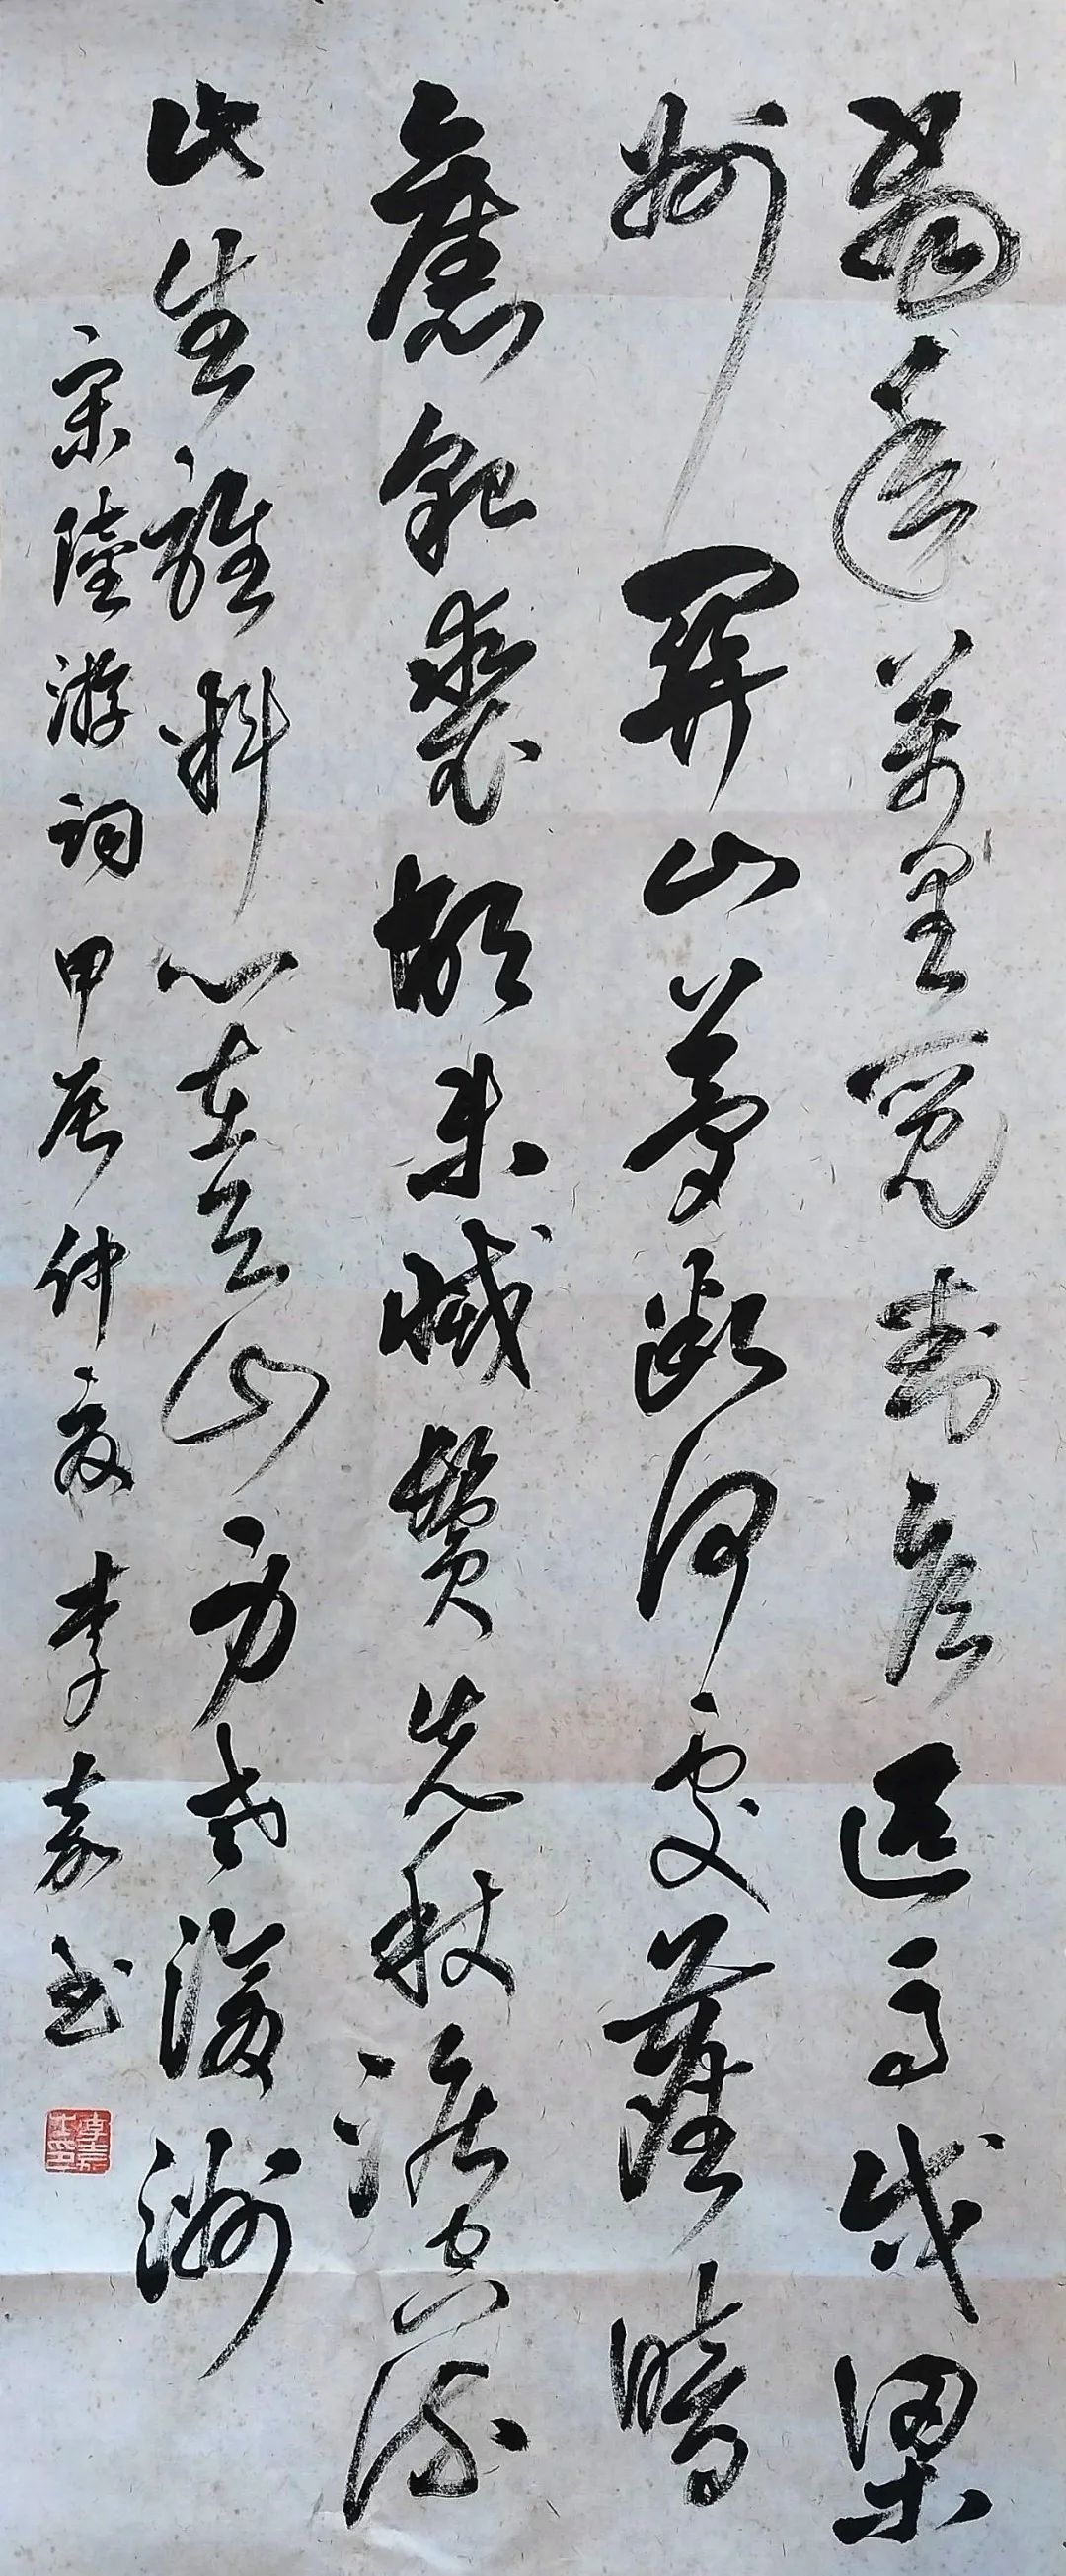 當年萬里覓封侯匹馬戍梁
州關山夢斷何處塵暗
舊貂裘胡未滅鬢先秋淚空流
此生誰料心在天山身老滄洲
宋陸游詞甲辰仲夏李嘉书
李嘉之印